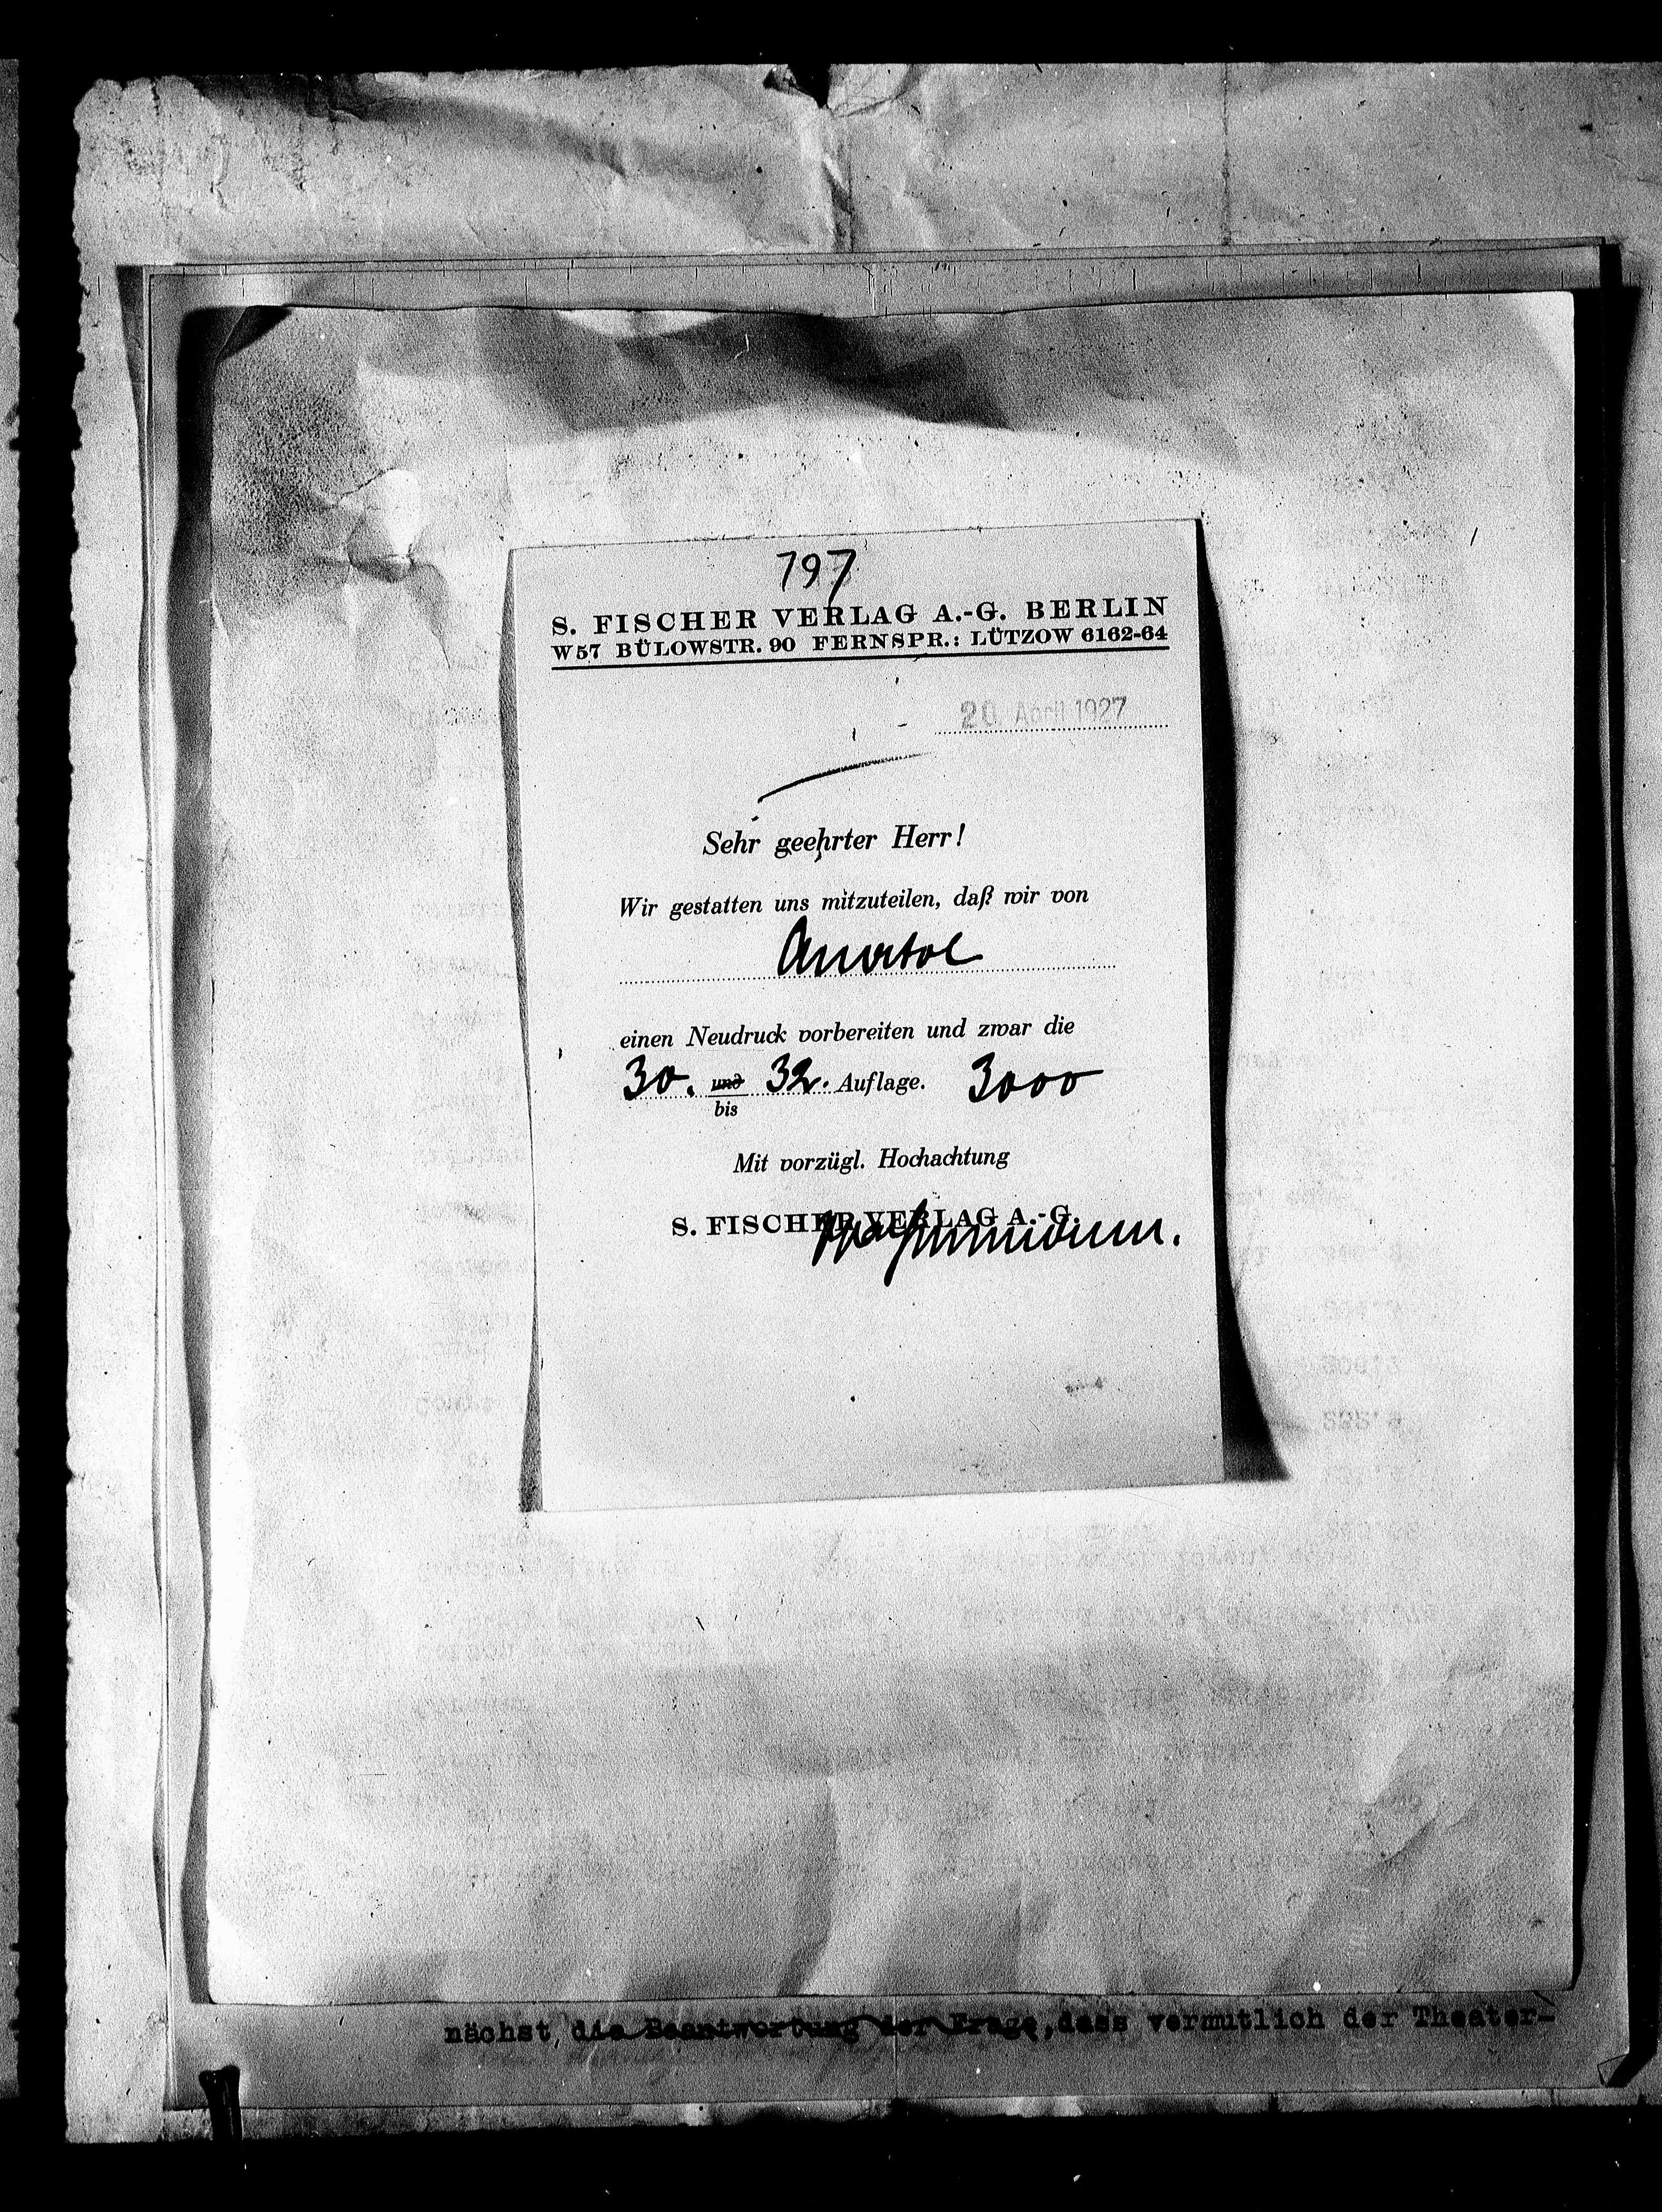 797
S. FISCHER VERLAG A.-G. BERLIN
W57 BÜLOWSTR. 90 FERNSPR.: LÜTZOW 6162-64
20. April 1927
Sehr geehrter Herr!
Wir gestatten uns mitzuteilen, daß wir von
Anatol
einen Neudruck vorbereiten und zwar die
30. und 32. Auflage. 3000
bis
Mit vorzügl. Hochachtung
S. FISCHER VERLAG A.-G.
nächst, die Beantwortung der Frage, dass vermutlich der Theater-